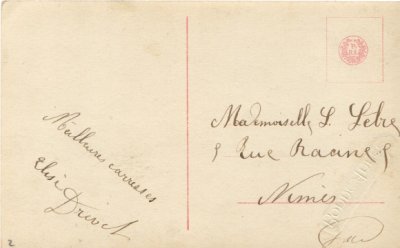 Meilleures caresses
Elisa
Drivet
Mademoiselle L. Lebre
5 Rue Racine 5
Nimes
2